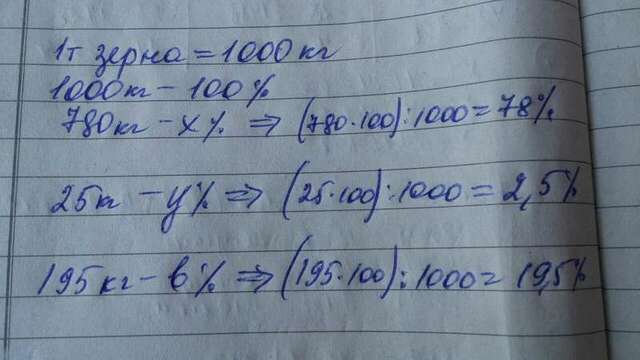 1т зерна = 1000 кг
1000кг – 100%
780кг – x% ⇒ (780·100):1000 = 78%
25кг – y% ⇒ (25·100):1000 = 2,5%
195кг – в% ⇒ (195·100):1000 = 19,5%